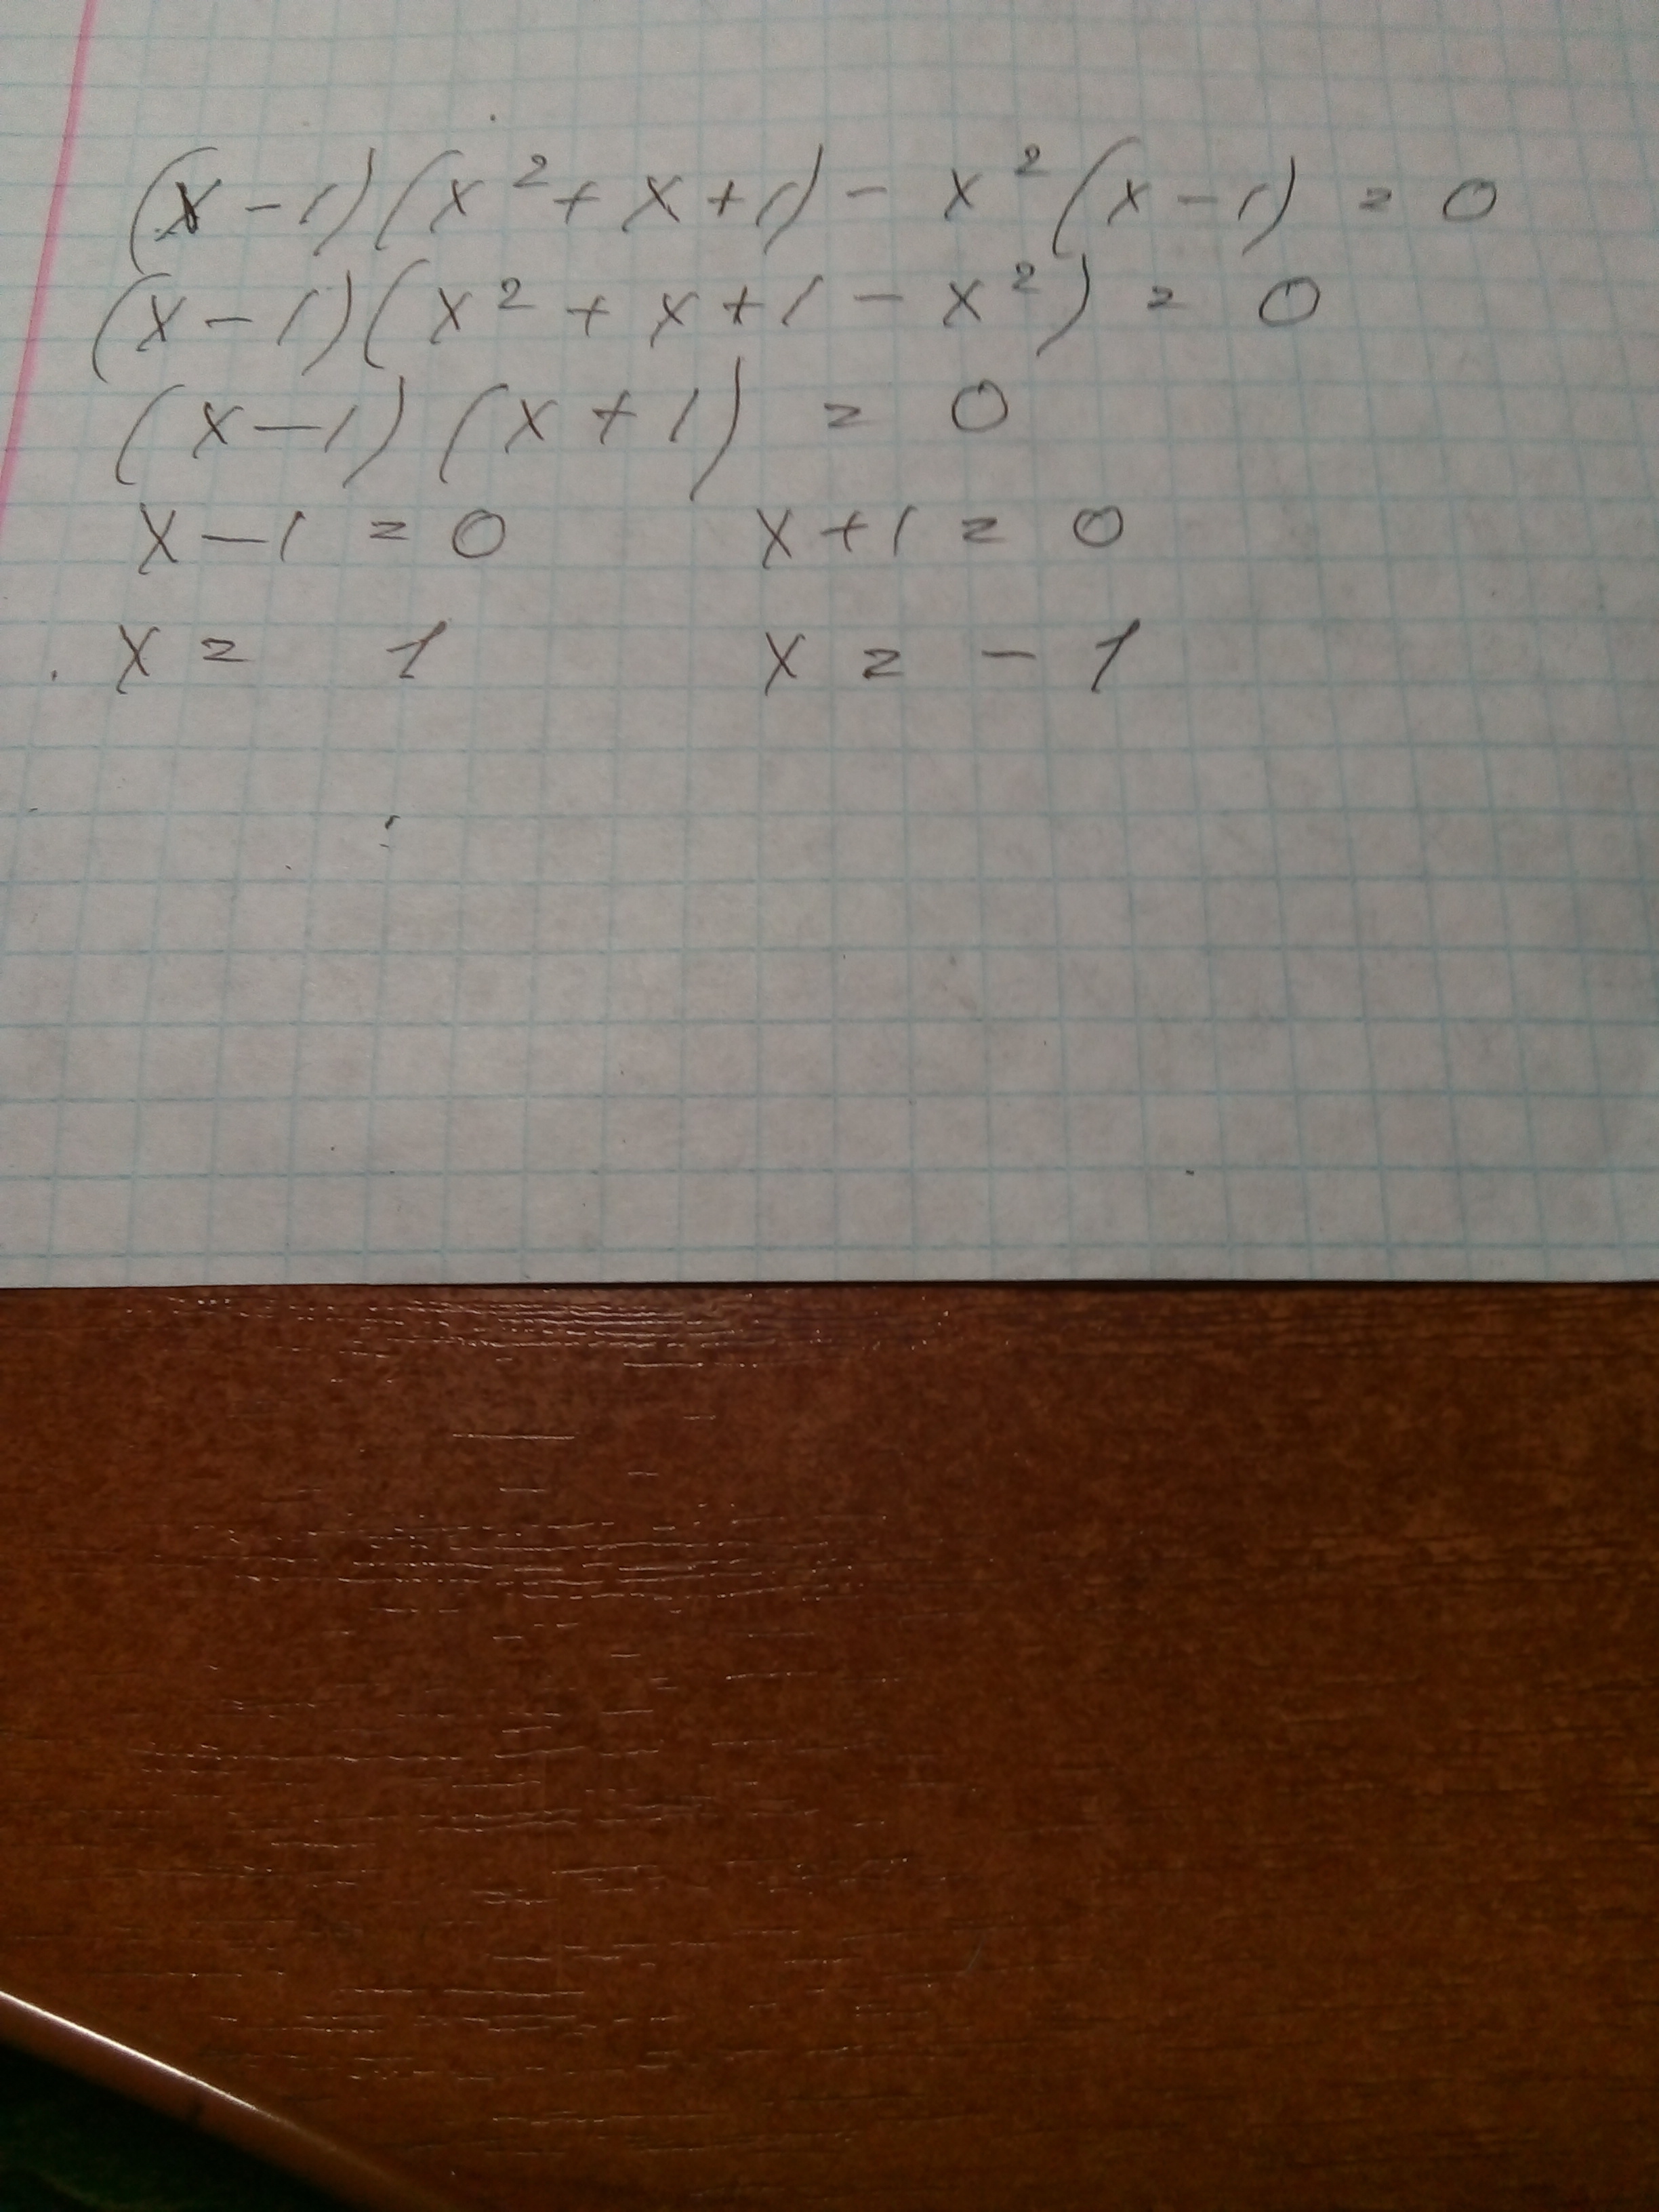 (x-1)(x²+x+1)-x²(x-1)=0
(x-1)(x²+x+1-x²)=0
(x-1)(x+1)=0
x-1=0 x+1=0
x=1 x=-1